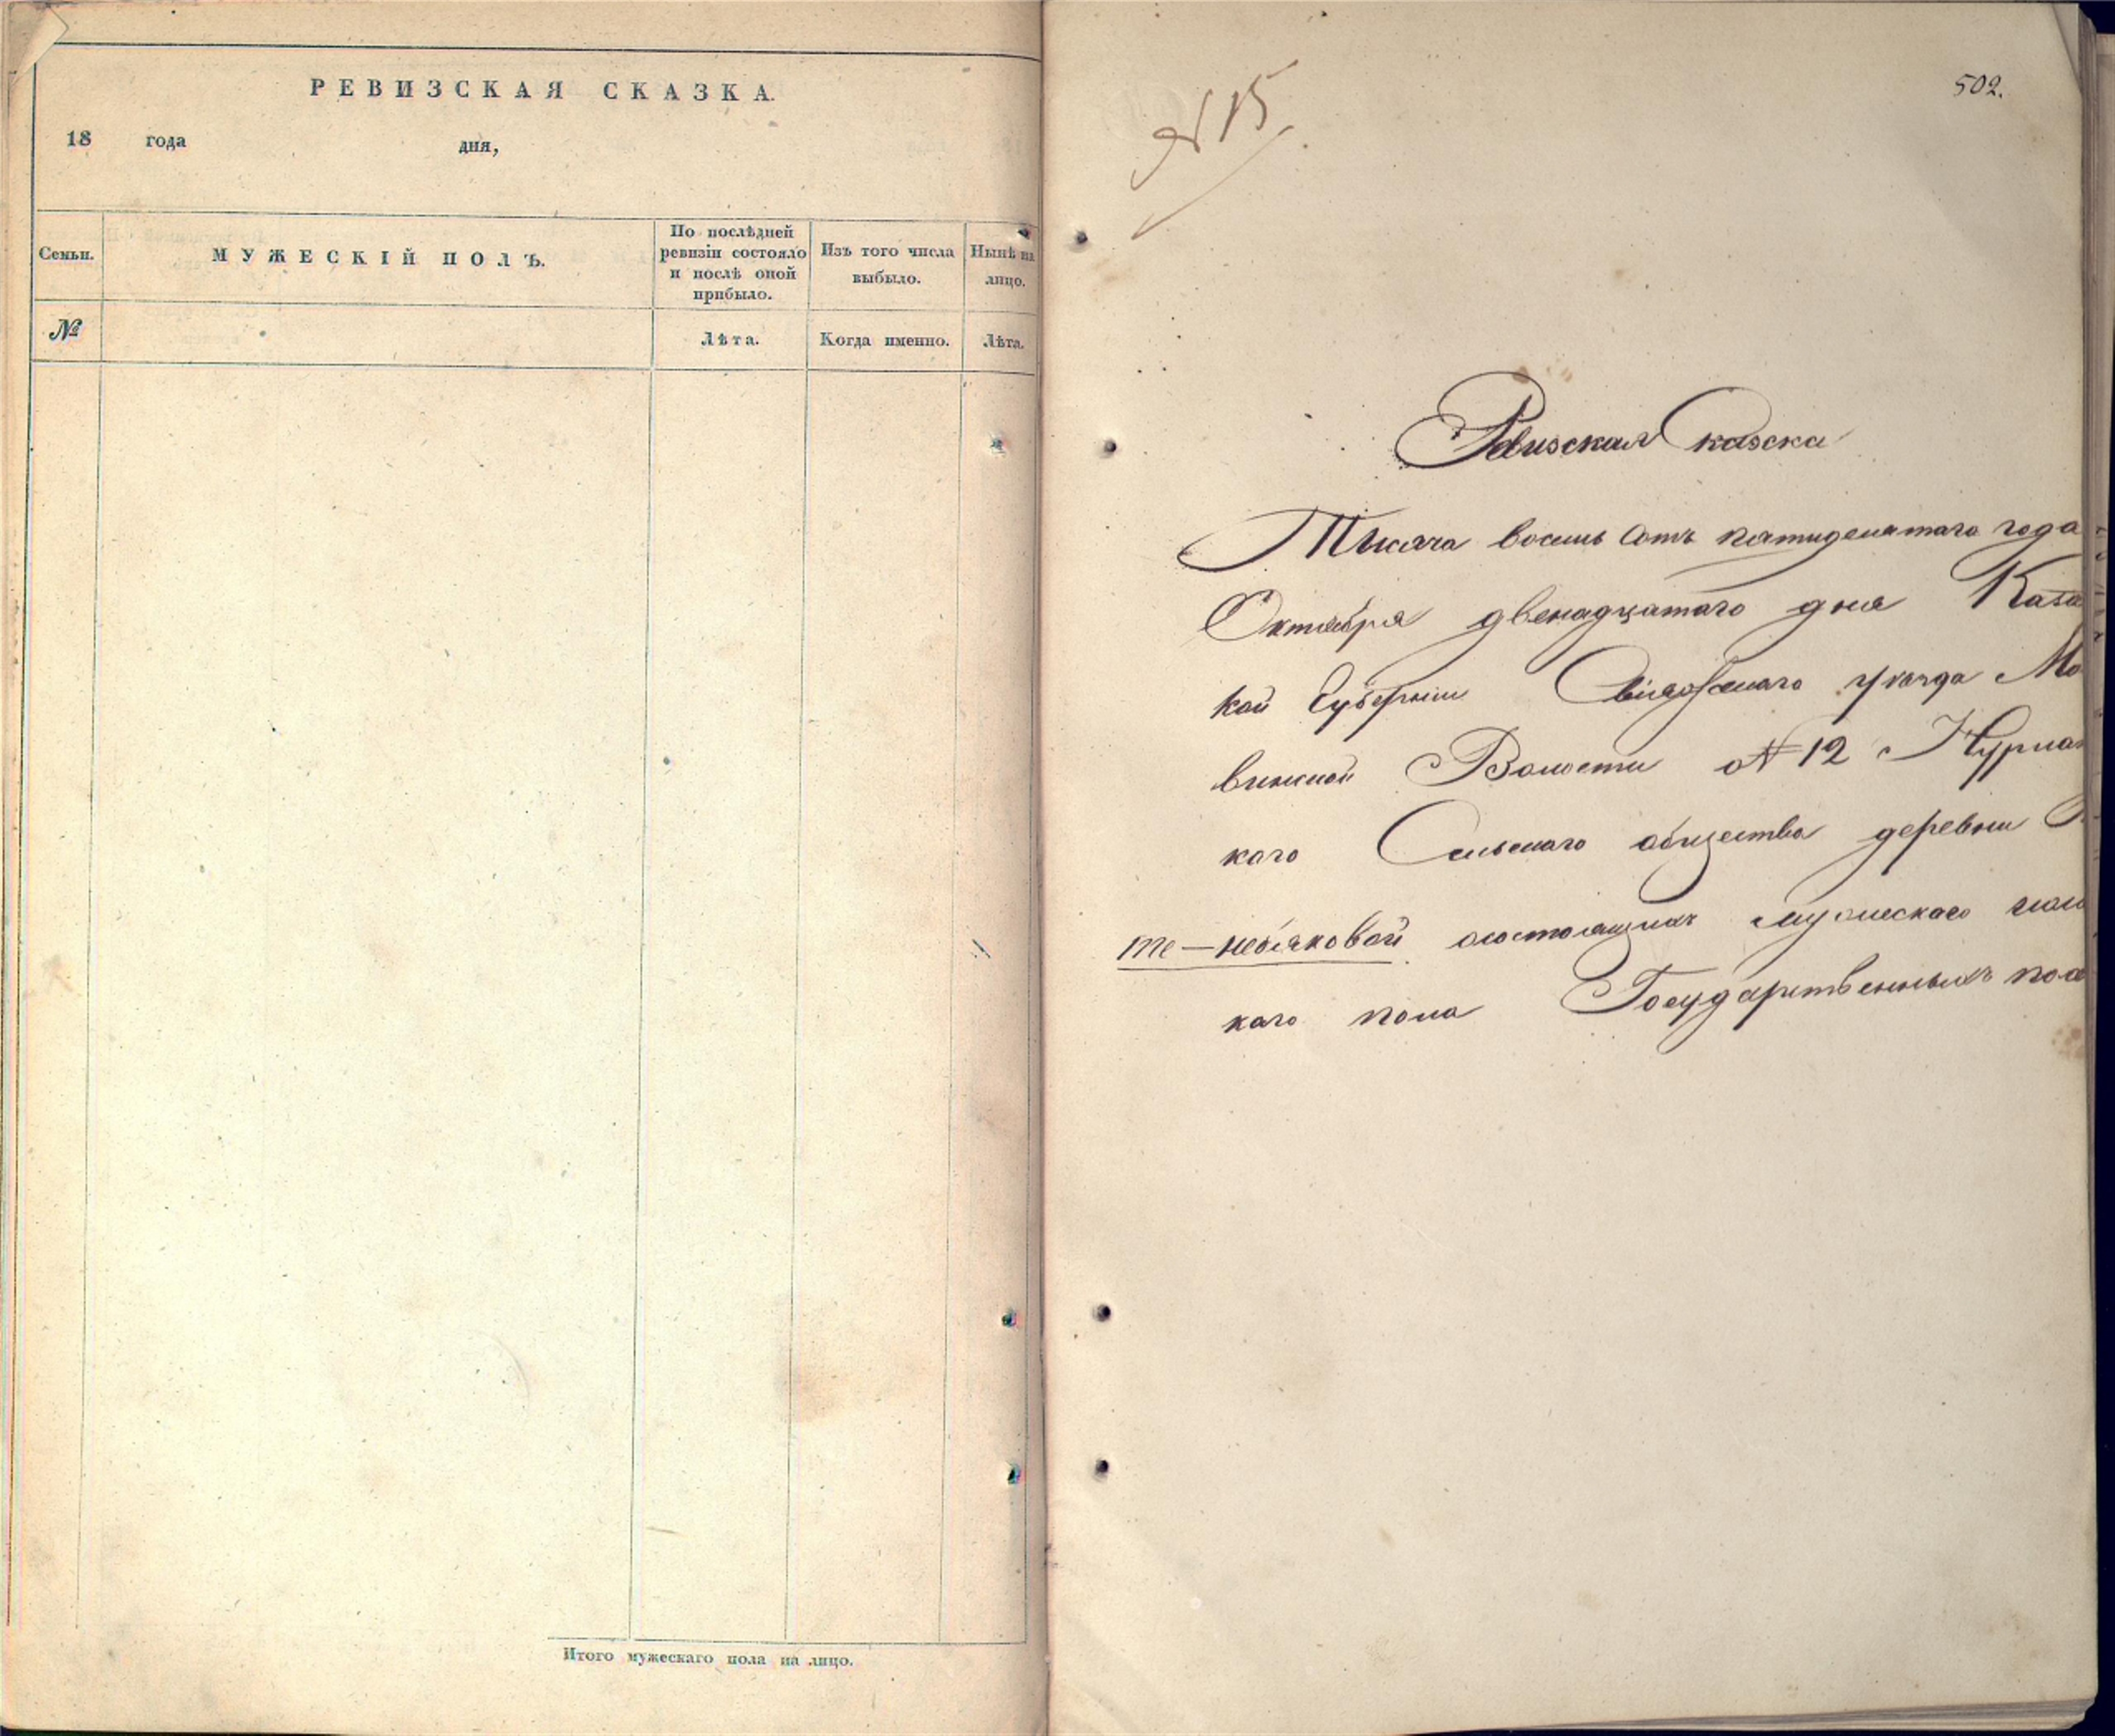 РЕВИЗСКАЯ СКАЗКА.
18 года дня,
Семьи.
МУЖЕСКІЙ ПОЛЪ.
По послѣдней
ревизіи состояло
и послѣ оной
прибыло.
Изъ того числа
выбыло.
Нынѣ на
лицо.
№
Лѣта.
Когда именно.
Лѣта.
Итого мужескаго пола на лицо.
502.
№ 15
Ревизская Сказска
Тысяча восемь сотъ пятидесятаго года
Октября двенадцатаго дня Каза
кой Губерніи Свіяжскаго уѣзда
Волости № 12 Нурла
каго Сельскаго общества деревни
состоящихъ мужескаго
каго пола Государственныхъ